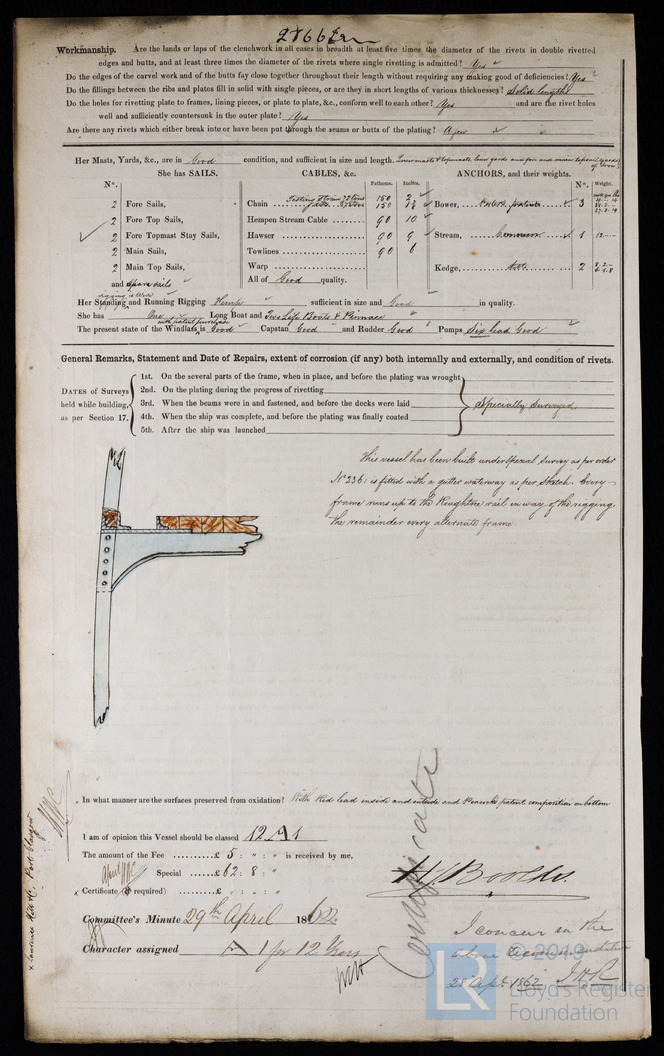 Workmanship. Are the lands or laps of the clenchwork in all cases in breadth at least five times the diameter of the rivets in double rivetted
edges and butts, and at least three times the diameter of the rivets where single rivetting is admitted? Yes
Do the edges of the carvel work and of the butts fay close together throughout their length without requiring any making good of deficiencies? Yes
Do the fillings between the ribs and plates fill in solid with single pieces, or are they in short lengths of various thicknesses? Solid lengths
Do the holes for rivetting plate to frames, lining pieces, or plate to plate, &c., conform well to each other? Yes and are the rivet holes
well and sufficiently countersunk in the outer plate? Yes
Are there any rivets which either break into or have been put through the seams or butts of the plating? A few
Her Masts, Yards, &c., are in Good condition, and sufficient in size and length.
She has SAILS. CABLES, &c. Fathoms. Inches. ANCHORS, and their weights.
Nº. Nº. Weight.
2 Fore Sails, Chain 150 Bower, 3
2 Fore Top Sails, Hempen Stream Cable 90 10
2 Fore Topmast Stay Sails, Hawser 90 9 Stream, Common 1
2 Main Sails, Towlines 90 6
2 Main Top Sails, Warp Kedge, 2
and Spare sails All of Good quality.
Her Standing and Running Rigging Hemp sufficient in size and Good in quality.
She has One Long Boat and Two Life Boats & Pinnace
with patent purchase
The present state of the Windlass is Good Capstan Good and Rudder Good Pumps Six lead Good
General Remarks, Statement and Date of Repairs, extent of corrosion (if any) both internally and externally, and condition of rivets.
DATES of Surveys held while building, as per Section 17.
1st. On the several parts of the frame, when in place, and before the plating was wrought
2nd. On the plating during the progress of rivetting
3rd. When the beams were in and fastened, and before the decks were laid Specially Surveyed
4th. When the ship was complete, and before the plating was finally coated
5th. After the ship was launched
This vessel has been built under Special Survey as per order
Nº 236; is fitted with a gutter waterway as per Sketch. Every
frame runs up to the Roughtree rail in way of the rigging
the remainder every alternate frame.
In what manner are the surfaces preserved from oxidation? With Red lead inside and outside and Peacocks patent composition on bottom
I am of opinion this Vessel should be classed 12 A 1
The amount of the Fee .........£ 5 : „ : „ is received by me,
Special ......£ 62 : 8 : „
Certificate (if required) ......£ „ : „ : „
Certificate
Committee's Minute 29th April 1862
Character assigned A 1 for 12 Years
I concur in the
above recommendation
28 Apl 1862 J.H.R
© 2019
LR
Lloyd's Register
Foundation